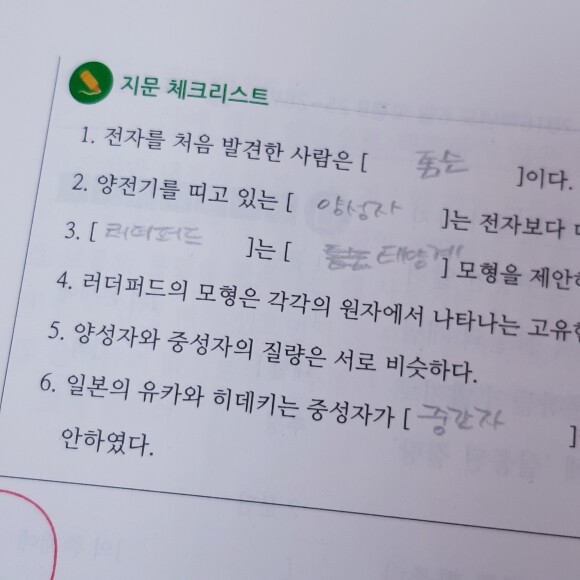 지문 체크리스트
1. 전자를 처음 발견한 사람은 [ 톰슨 ]이다.
2. 양전기를 띠고 있는 [ 양성자 ]는 전자보다
3. [ 러더퍼드 ]는 [ 태양계 ] 모형을 제안
4. 러더퍼드의 모형은 각각의 원자에서 나타나는 고유한
5. 양성자와 중성자의 질량은 서로 비슷하다.
6. 일본의 유카와 히데키는 중성자가 [ 중간자 ]
안하였다.